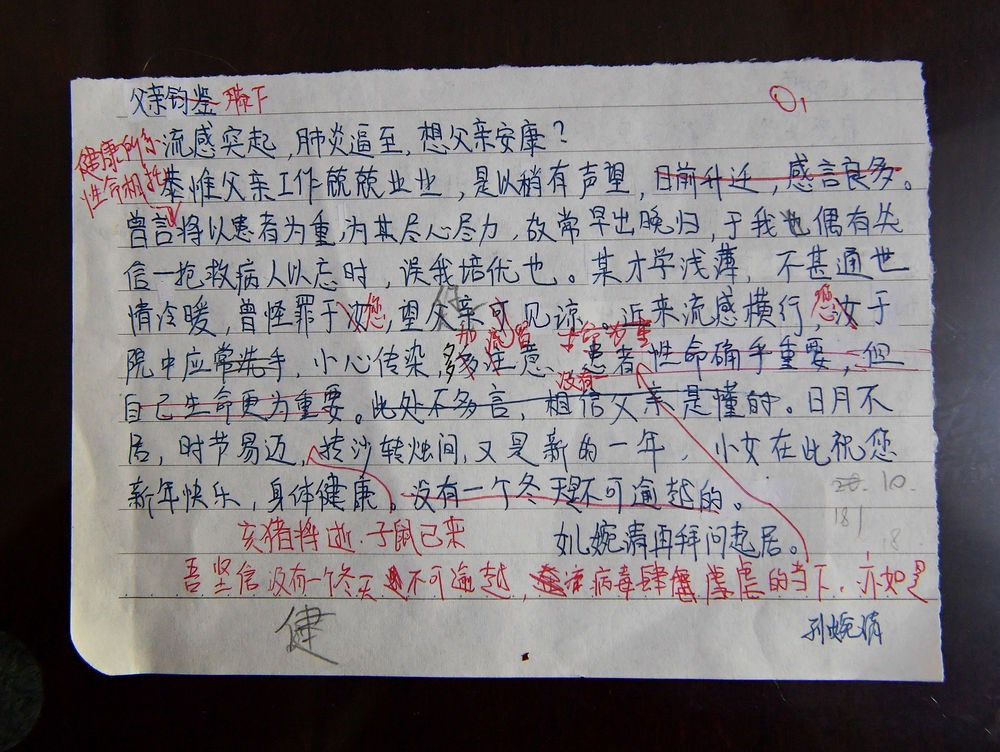 父亲钧鉴 膝下
流感突起，肺炎逼至，想父亲安康？
健康所系
性命相托
恭惟父亲工作兢兢业业，是以稍有声望，日前升迁，感言良多。
曾言将以患者为重，为其尽心尽力，故常早出晚归，于我也偶有失
信—抢救病人以忘时，误我培优也。某才学浅薄，不甚通世
情冷暖，曾怪罪于汝您，望父亲可见谅。近来流感横行，您汝于
院中应常洗手，小心传染，多注意、患者性命确乎重要，但
自己生命更为重要。此处不多言，相信父亲是懂的。日月不
没有一
居，时节易迈，抟沙转烛间，又是新的一年，小女在此祝您
新年快乐，身体健康。没有一个冬天是不可逾越的。
20. 10.
181
18
亥猪将逝.子鼠已来
女儿婉清再拜问起居。
吾坚信没有一个冬天不可逾越，病毒肆虐的当下，亦如是
健
孙婉清